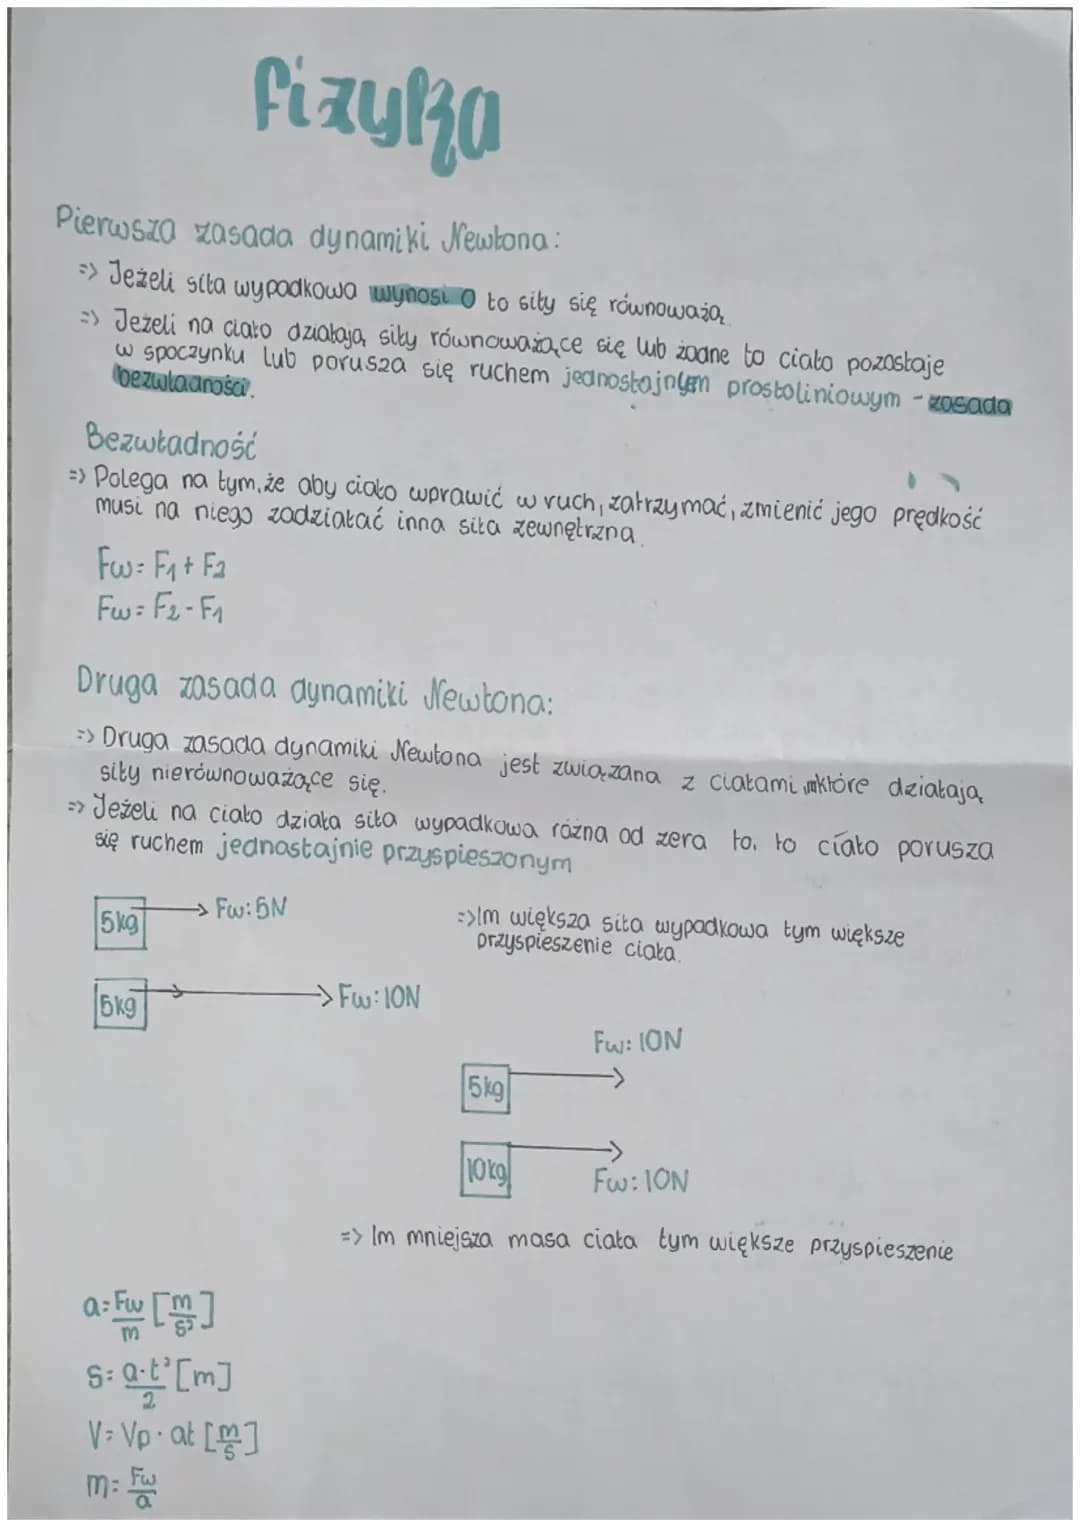 fizyka
Pierwsza zasada dynamiki Newtona:
=> Jeżeli siła wypadkowa wynosi 0 to siły się równoważą.
=> Jeżeli na ciało działają siły równoważące się lub żadne to ciało pozostaje
w spoczynku lub porusza się ruchem jednostajnym prostoliniowym - zasada
bezwładności.
Bezwładność
=> Polega na tym, że aby ciało wprawić w ruch, zatrzymać, zmienić jego prędkość
musi na niego zadziałać inna siła zewnętrzna.
Fw= F1 + F2
Fw= F2 - F1
Druga zasada dynamiki Newtona:
=> Druga zasada dynamiki Newtona jest związana z ciałami które działają
siły nierównoważące się.
=> Jeżeli na ciało działa siła wypadkowa różna od zera to, to ciało porusza
się ruchem jednostajnie przyspieszonym
5kg Fw: 5N
=> Im większa siła wypadkowa tym większe
przyspieszenie ciała.
5kg Fw: 10N
Fw: 10N
5kg
10kg
Fw: 10N
=> Im mniejsza masa ciała tym większe przyspieszenie
a= Fw/m [m/s²]
s= a·t²/2 [m]
V= Vp · at [m/s]
m= Fw/a